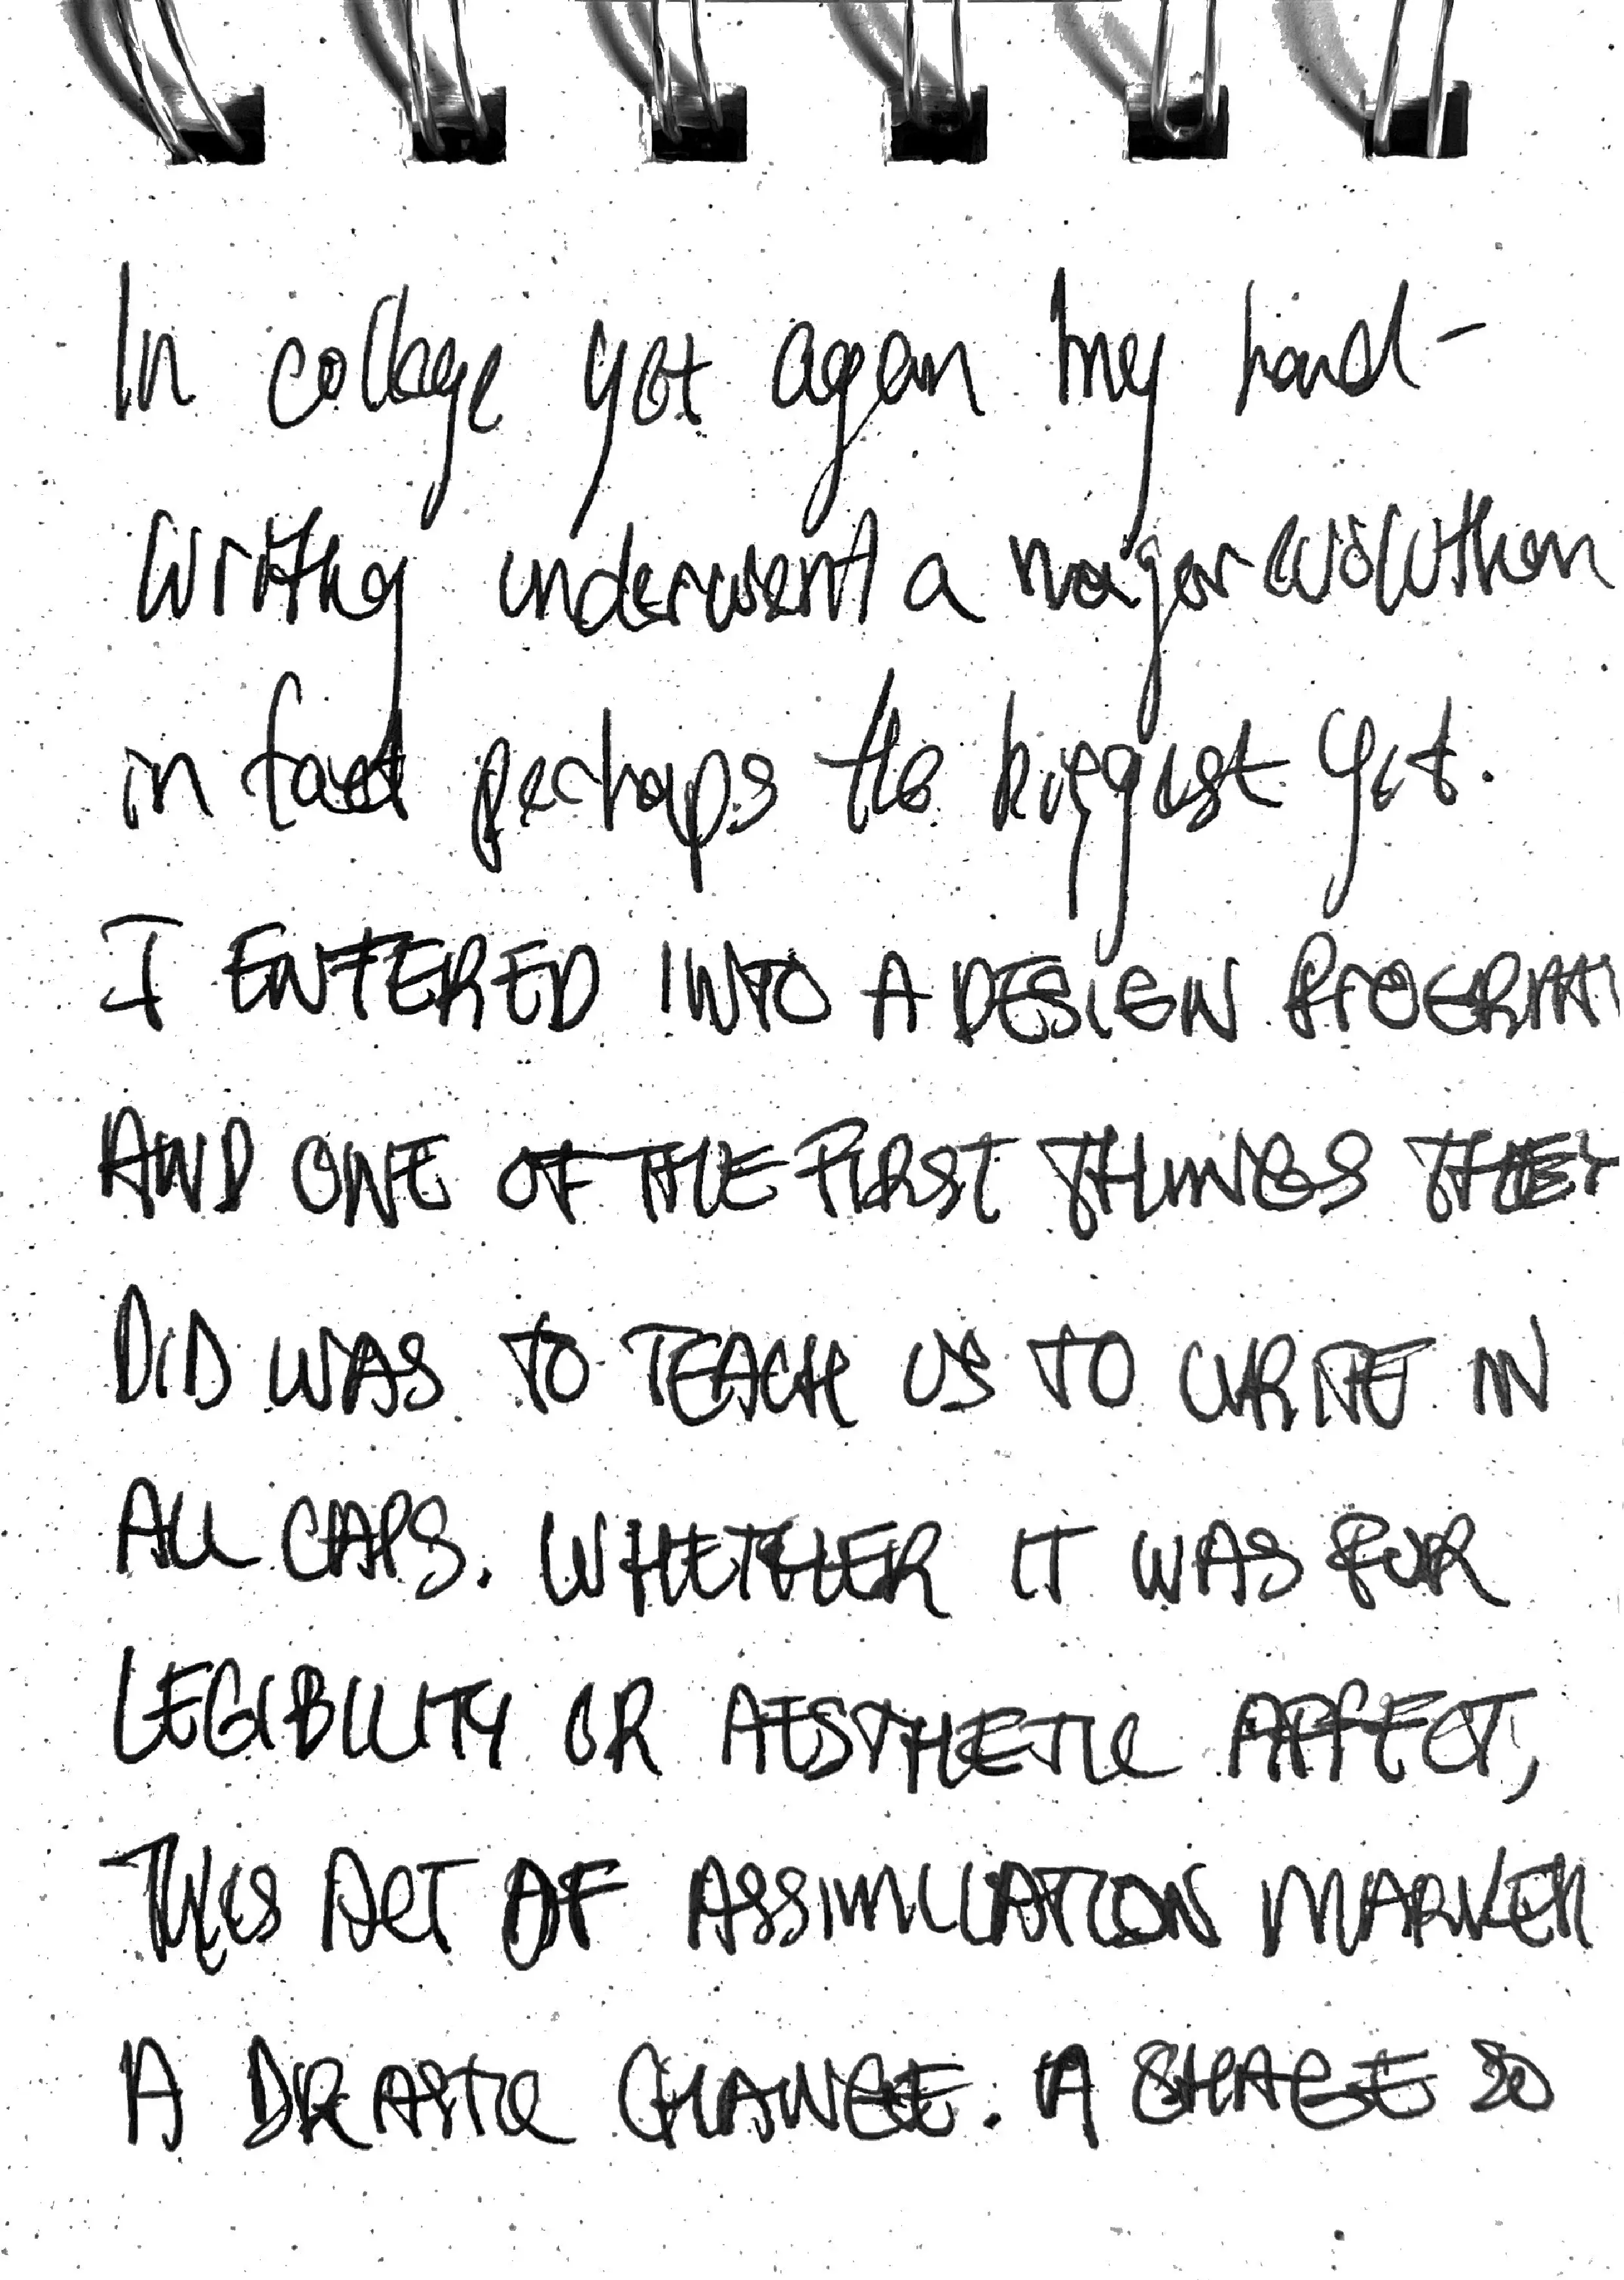 In college yet again my hand-
writing underwent a major evolution
in fact perhaps the biggest yet.
I ENTERED INTO A DESIGN PROGRAM
AND ONE OF THE FIRST THINGS THEY
DID WAS TO TEACH US TO WRITE IN
ALL CAPS. WHETHER IT WAS FOR
LEGIBILITY OR AESTHETIC AFFECT,
THIS ACT OF ASSIMILATION MARKED
A DRASTIC CHANGE. A CHANGE SO